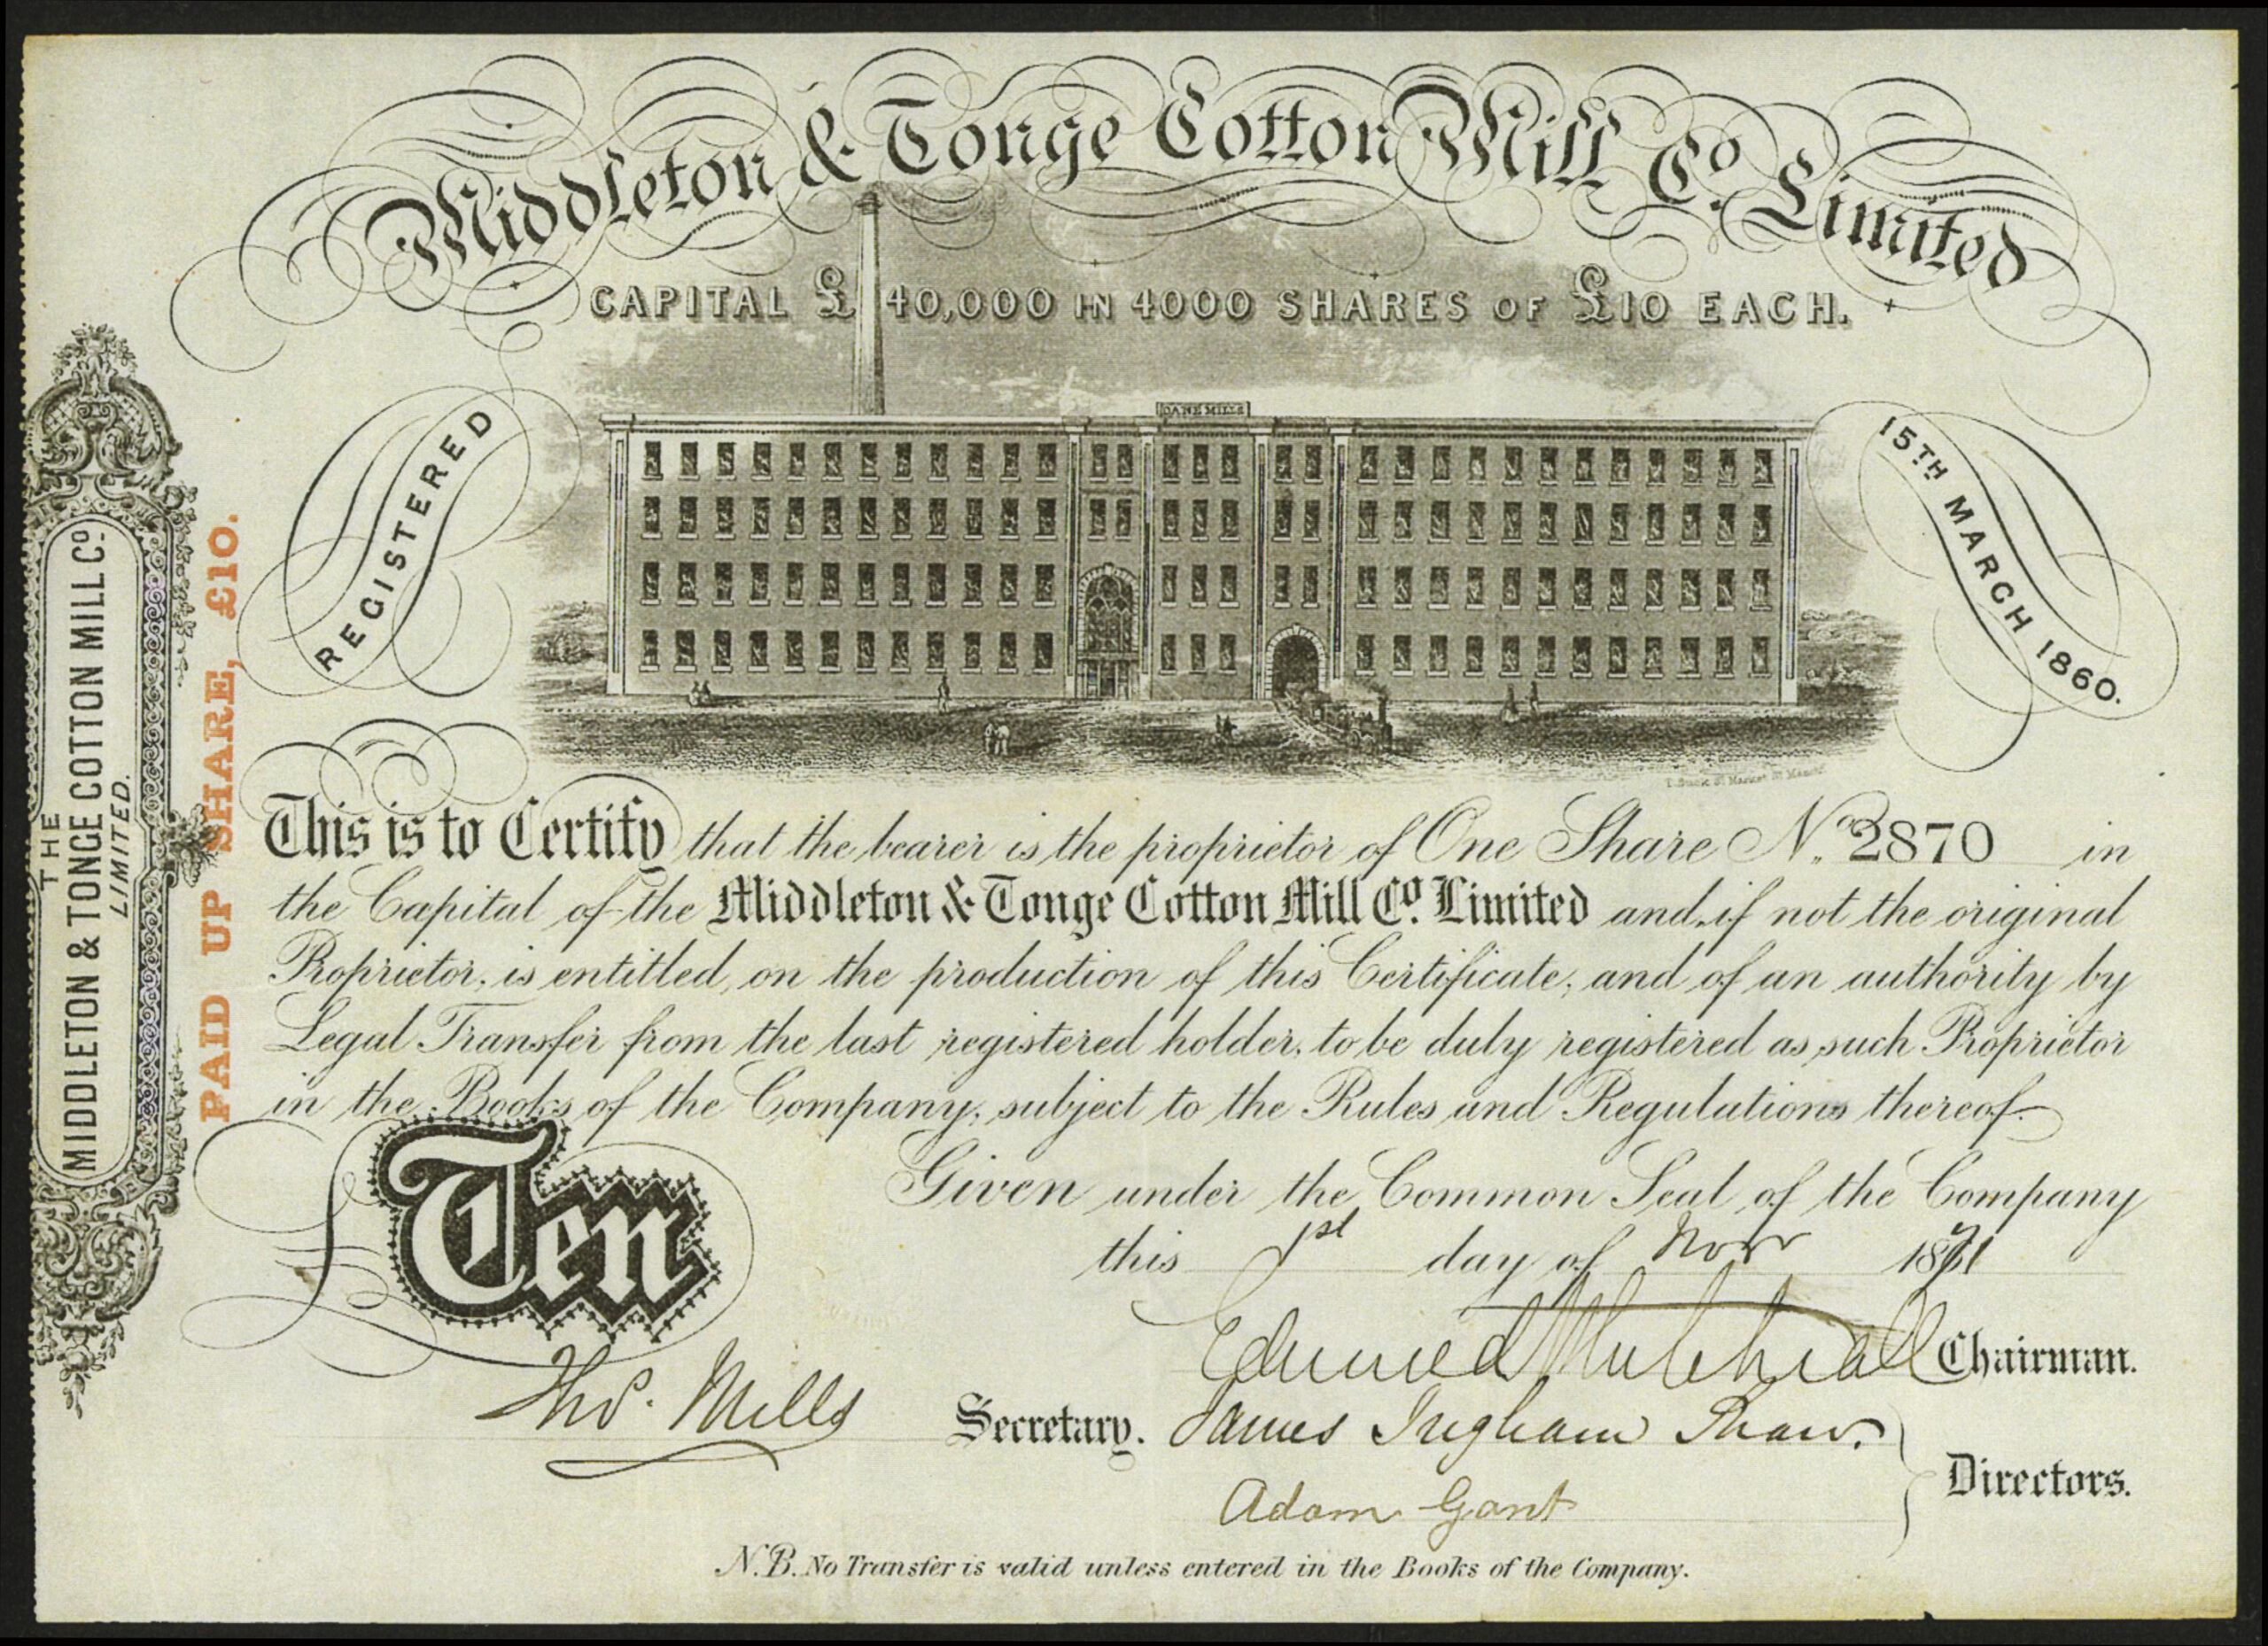 Middleton & Tonge Cotton Mill Co. Limited
CAPITAL £40,000 IN 4000 SHARES OF £10 EACH.
REGISTERED
15TH MARCH 1860.
DANE MILLS
THE
MIDDLETON & TONGE COTTON MILL Co.
LIMITED.
PAID UP SHARE, £10.
This is to Certify that the bearer is the proprietor of One Share No. 2870 in
the Capital of the Middleton & Tonge Cotton Mill Co. Limited and, if not the original
Proprietor, is entitled, on the production of this Certificate, and of an authority by
Legal Transfer from the last registered holder, to be duly registered as such Proprietor
in the Books of the Company, subject to the Rules and Regulations thereof.
£Ten
Given under the Common Seal of the Company
this 1st day of Novr 1871
Chairman.
Thos. Mills Secretary. James Ingham Shaw.
Adam Gant
Directors.
N.B. No Transfer is valid unless entered in the Books of the Company.